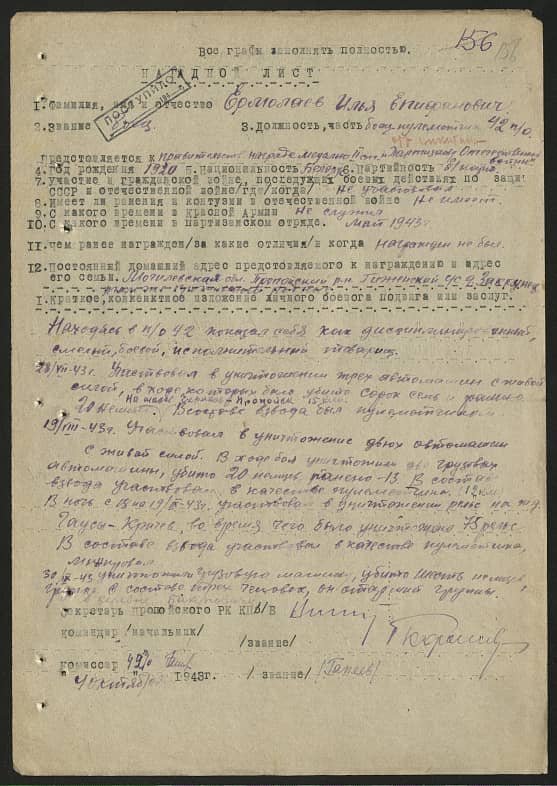 156 156
Все графы заполнять полностью.
НАГРАДНОЙ ЛИСТ
ПОСТУПИЛО
1. Фамилия, имя и отчество Ермолаев Илья Епифанович
2. Звание боец 3. Должность, часть боец пулеметчик 42 п/о
Представляется к правительств. награде медалью "Партизану Отечественной войны"
4. Год рождения 1920 5. Национальность Белорус 6. Партийность б/парт
7. Участие в гражданской войне, последующих боевых действиях по защите
СССР и отечественной войне/где/когда/ Не участвовал
8. Имеет ли ранения и контузии в отечественной войне Не имеет.
9. С какого времени в красной Армии Не служил
10. С какого времени в партизанском отряде. Май 1943г.
11. чем ранее награжден/за какие отличия/и когда Награжден не был.
12. Постоянный домашний адрес представляемого к награждению и адрес
его семьи. Могилевская обл. Пропойский р-н с/с д.
1. Краткое, конкретное изложение личного боевого подвига или заслуг.
Находясь в п/о 42 показал себя как дисциплинированный,
смелый, боевой, исполнительный товарищ.
Участвовал в уничтожении трех автомашин с живой
силой, в ходе которых было убито сорок семь и ранено
20 немцев. В составе взвода был пулеметчиком
19/VIII-43г. Участвовал в уничтожение двух автомашин
с живой силой. В ходе боя уничтожили две грузовых
автомашины, убито 20 немцев ранено-13. В составе
взвода участвовал в качестве пулеметчика.
В ночь с на 19/ -43г. участвовал в уничтожении рельс на ж.д.
Кричев, во время чего было уничтожено 75 рельс.
В составе взвода участвовал в качестве пулеметчика,
-43 уничтожили грузовую машину, убито шесть немцев
в составе человек, он старший группы.
Секретарь пропойского РК КП/б/Б
командир /начальник/
/звание/
комиссар 42 п/о /звание/ /Ганеев/
4 октября 1943г.